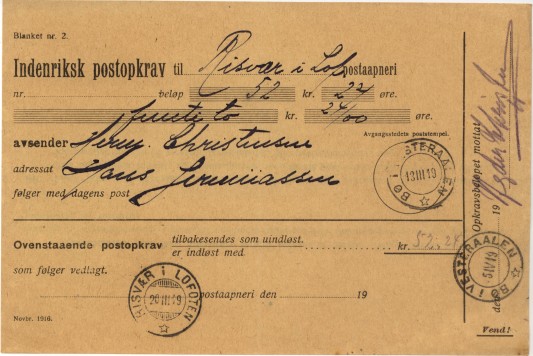 Blanket nr. 2.
Indenriksk postopkrav til Risvær i Lof. postaapneri
nr. beløp 52 kr. 24 øre.
femti to kr. 24/00 øre.
Avgangsstedets poststempel.
avsender Herm. Christensen
adressat Hans Jeremiassen
følger med dagens post
BØ I VESTERAALEN
13 III 19
Ovenstaaende postopkrav tilbakesendes som uindløst.
er indløst med kr. 52.24
som følger vedlagt.
postaapneri den 19
RISVÆR I LOFOTEN
20 III 19
Novbr. 1916.
Opkravsbeløpet mottat
den 19
BØ I VESTERAALEN
5 IV 19
Vend!